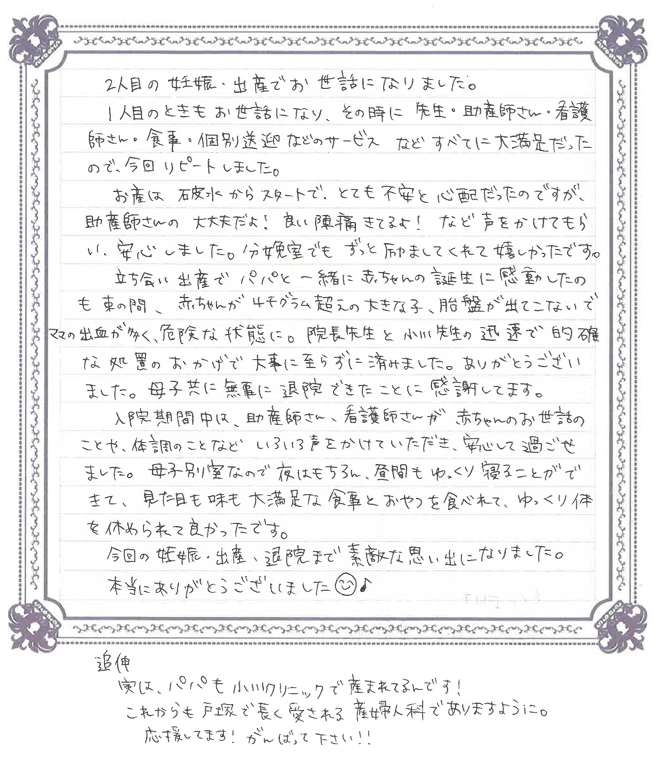 2人目の妊娠・出産でお世話になりました。
1人目のときもお世話になり、その時に先生・助産師さん・看護
師さん・食事・個別送迎などのサービスなどすべてに大満足だった
ので、今回リピートしました。
お産は破水からスタートで、とても不安と心配だったのですが、
助産師さんの大丈夫だよ!良い陣痛きてるよ!など声をかけてもら
い、安心しました。分娩室でもずっと励ましてくれて嬉しかったです。
立ち会い出産でパパと一緒に赤ちゃんの誕生に感動したの
も束の間、赤ちゃんが4千グラム超えの大きな子、胎盤が出てこないで
ママの出血が多く、危険な状態に。院長先生と小川先生の迅速で的確
な処置のおかげで大事に至らずに済みました。ありがとうござい
ました。母子共に無事に退院できたことに感謝してます。
入院期間中は、助産師さん、看護師さんが赤ちゃんのお世話の
ことや、体調のことなどいろいろ声をかけていただき、安心して過ごせ
ました。母子別室なので夜はもちろん、昼間もゆっくり寝ることがで
きて、見た目も味も大満足な食事とおやつを食べれて、ゆっくり体
を休められて良かったです。
今回の妊娠・出産、退院まで素敵な思い出になりました。
本当にありがとうございました☺♪
追伸
実は、パパも小川クリニックで産まれてるんです!
これからも戸塚で長く愛される産婦人科でありますように。
応援してます!がんばって下さい!!